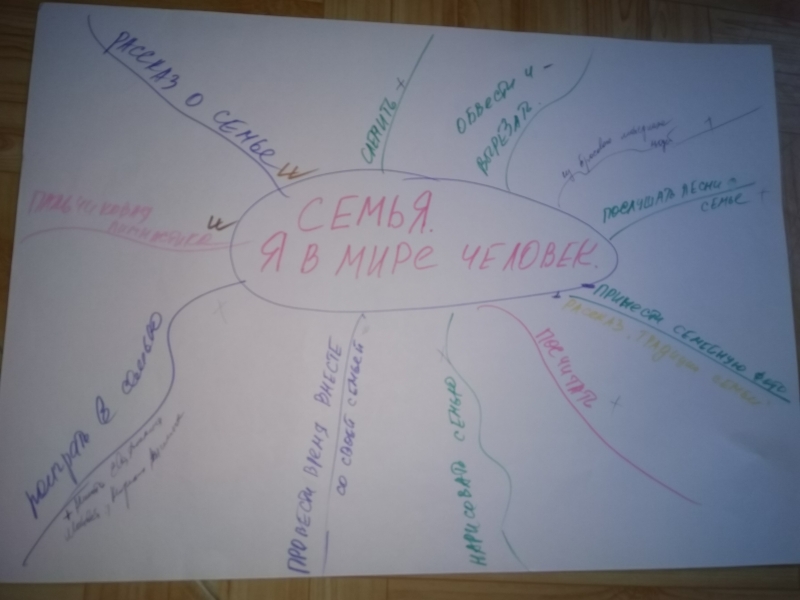 СЕМЬЯ.
Я В МИРЕ ЧЕЛОВЕК.
РАССКАЗ О СЕМЬЕ
СЛЕПИТЬ +
ОБВЕСТИ И -
ВЫРЕЗАТЬ.
ПОСЛУШАТЬ ПЕСНИ О
СЕМЬЕ +
ПРИНЕСТИ СЕМЕЙНУЮ ФОТО
РАССКАЗ. ТРАДИЦИИ СЕМЬИ
ПОСЧИТАТЬ +
НАРИСОВАТЬ СЕМЬЮ
ПРОВЕСТИ ВРЕМЯ ВМЕСТЕ
СО СВОЕЙ СЕМЬЕЙ
поиграть в семью
ПАЛЬЧИКОВАЯ
ГИМНАСТИКА